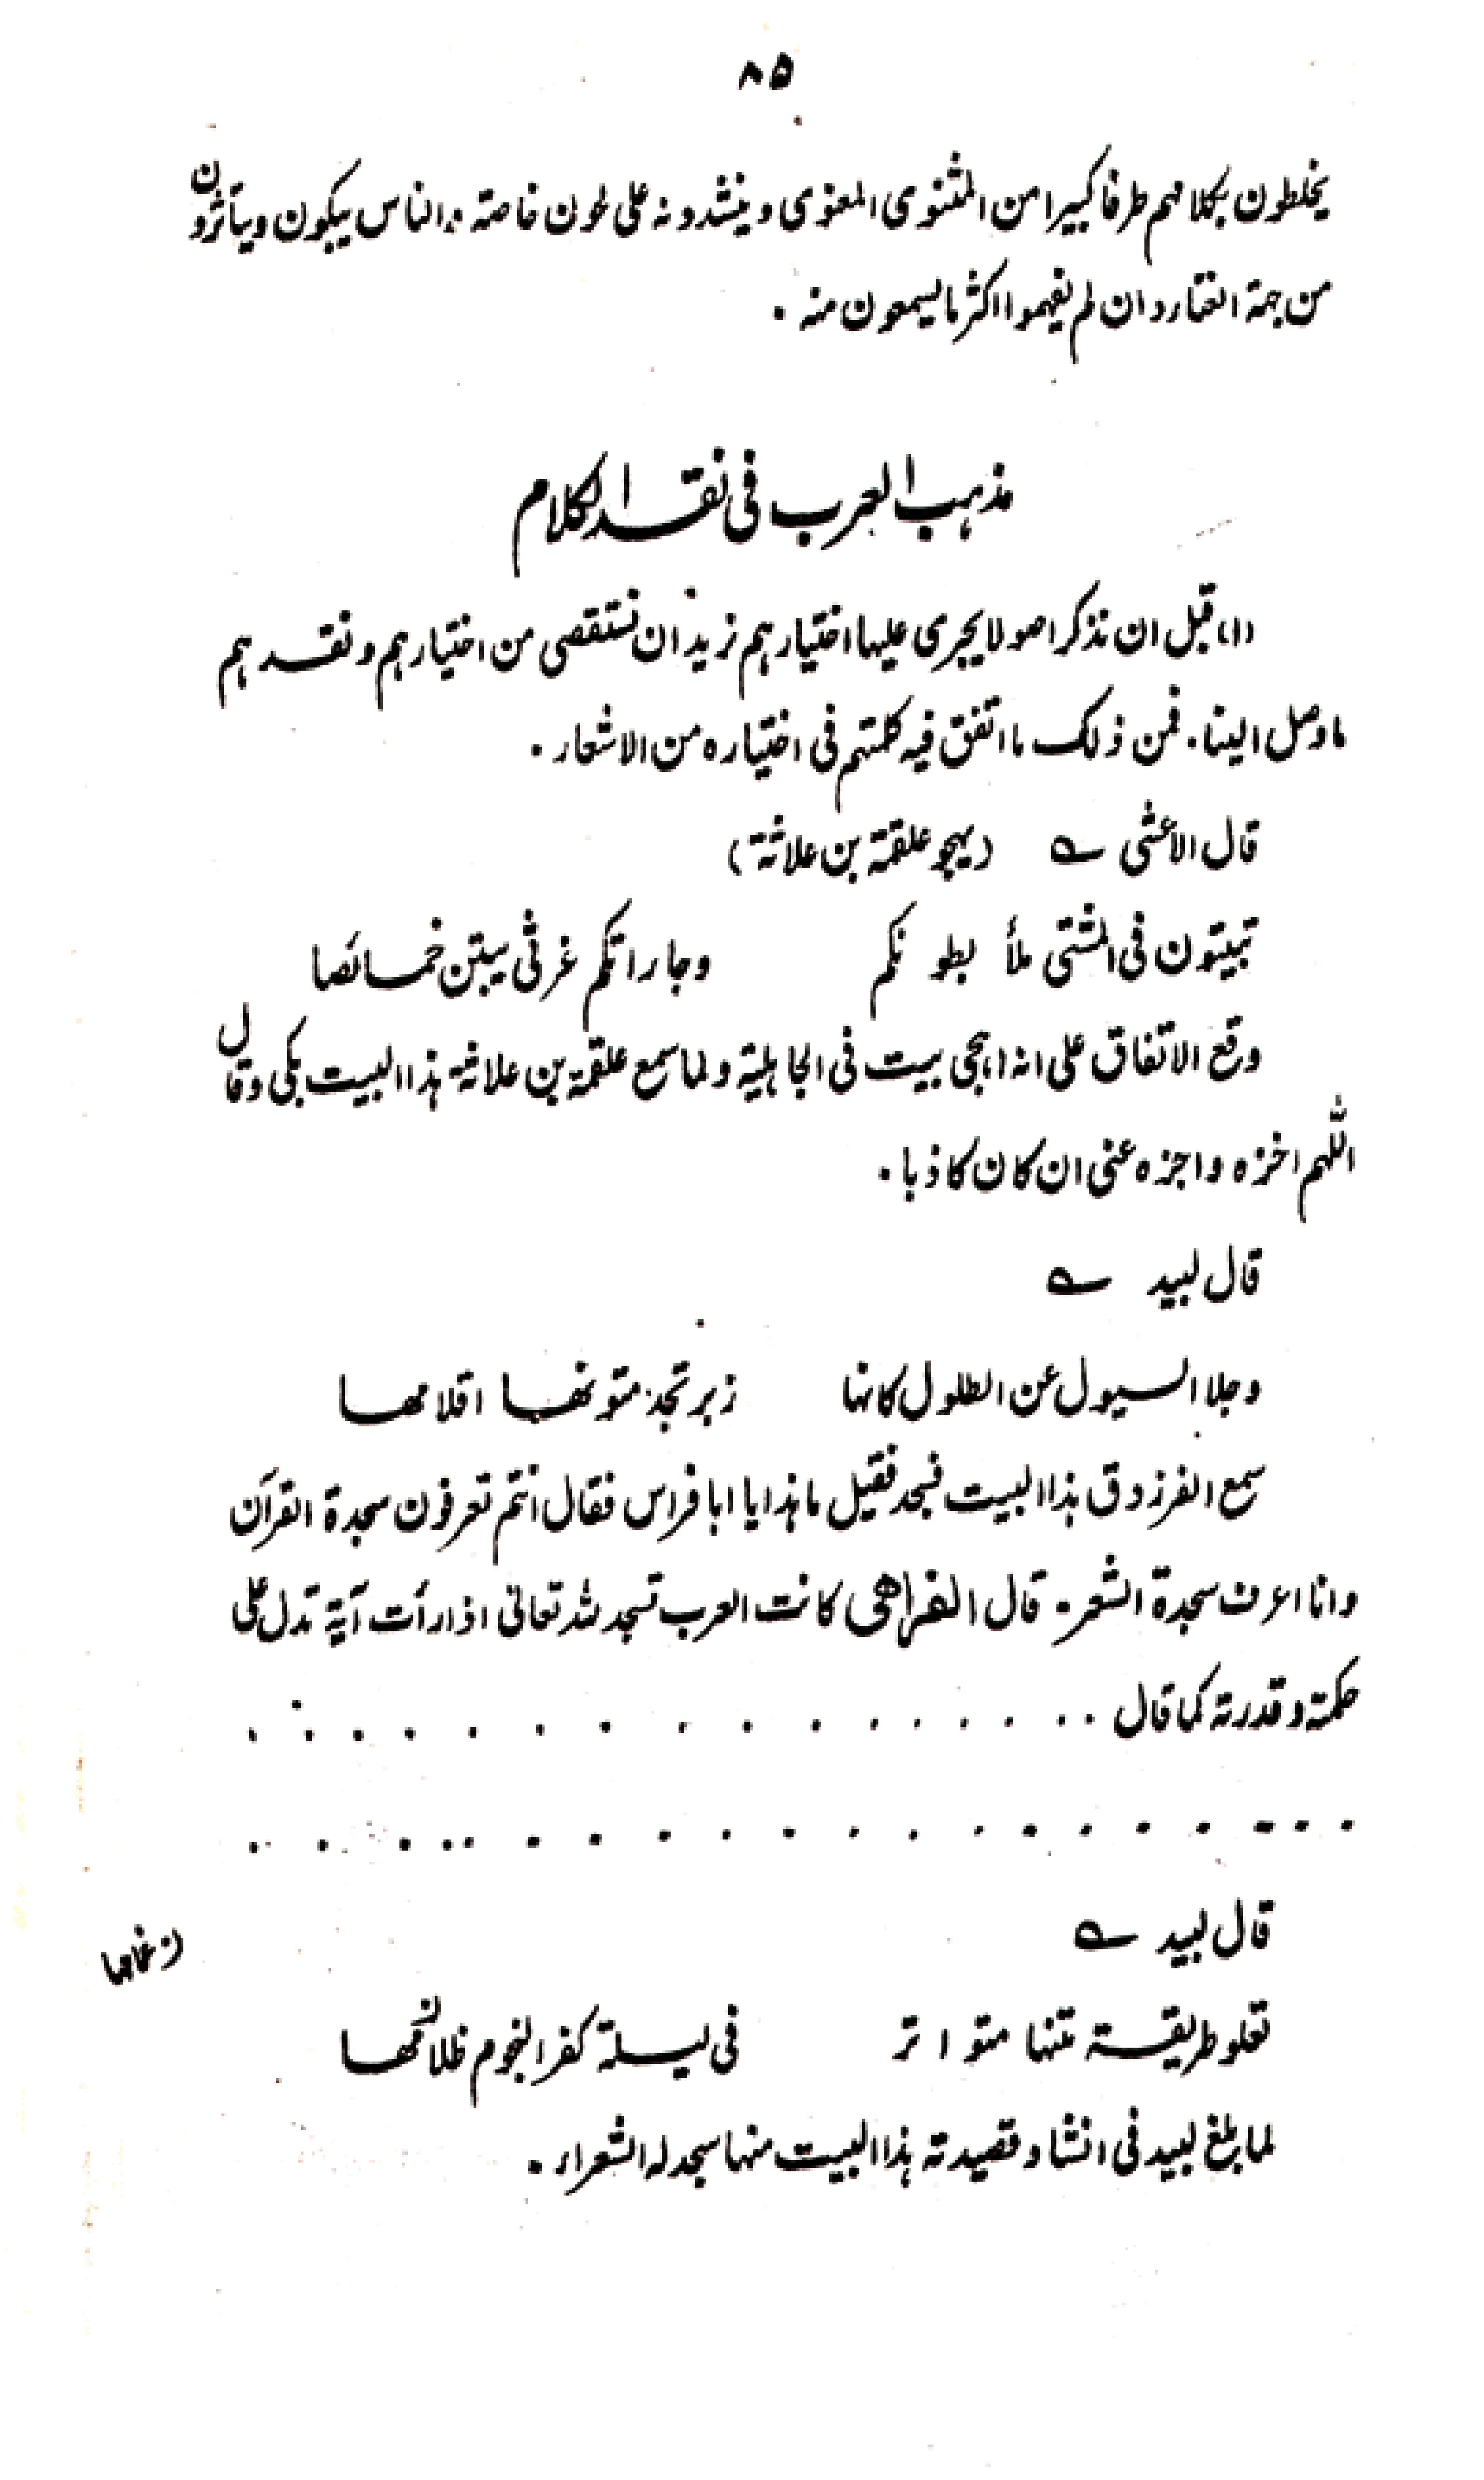 ۸۵
يخلطون بكلامهم طرفا كبيرا من المثنوى المعنوى وينشدونه على لحون خاصة والناس يبكون ويتأثرون
من جهة العقار وان لم يفهموا اكثر ما يسمعون منه .
مذهب العرب فى نقد الكلام
(۱) قبل ان نذكر اصولا يجرى عليها اختيارهم نريد ان نستقصى من اختيارهم ونقدهم
ما وصل الينا . فمن ذلك ما اتفق فيه كلمتهم فى اختياره من الاشعار .
قال الأعشى ؎ (يهجو علقمة بن علاثة)
تبيتون فى المشتى ملأ بطونكم وجاراتكم غرثى يبتن خمائصا
وقع الاتفاق على انه اهجى بيت فى الجاهلية ولما سمع علقمة بن علاثة هذا البيت بكى وقال
اللهم اخزه واجزه عنى ان كان كاذبا .
قال لبيد ؎
وجلا السيول عن الطلول كانها زبر تجذ متونها اقلامها
سمع الفرزدق هذا البيت فسجد فقيل ما هذا يا ابا فراس فقال انتم تعرفون سجدة القرآن
وانا اعرف سجدة الشعر . قال الفراهى كانت العرب تسجد لله تعالى اذا رأت آية تدل على
حكمة وقدرته كما قال . . . . . . . . . . . . . . . .
. . . . . . . . . . . . . . . . . . . .
قال لبيد ؎
(ن غمامها
تعلو طريقة متنها متواتر فى ليلة كفر النجوم ظلامها
لما بلغ لبيد فى انشاد قصيدته هذا البيت منها سجد له الشعراء .